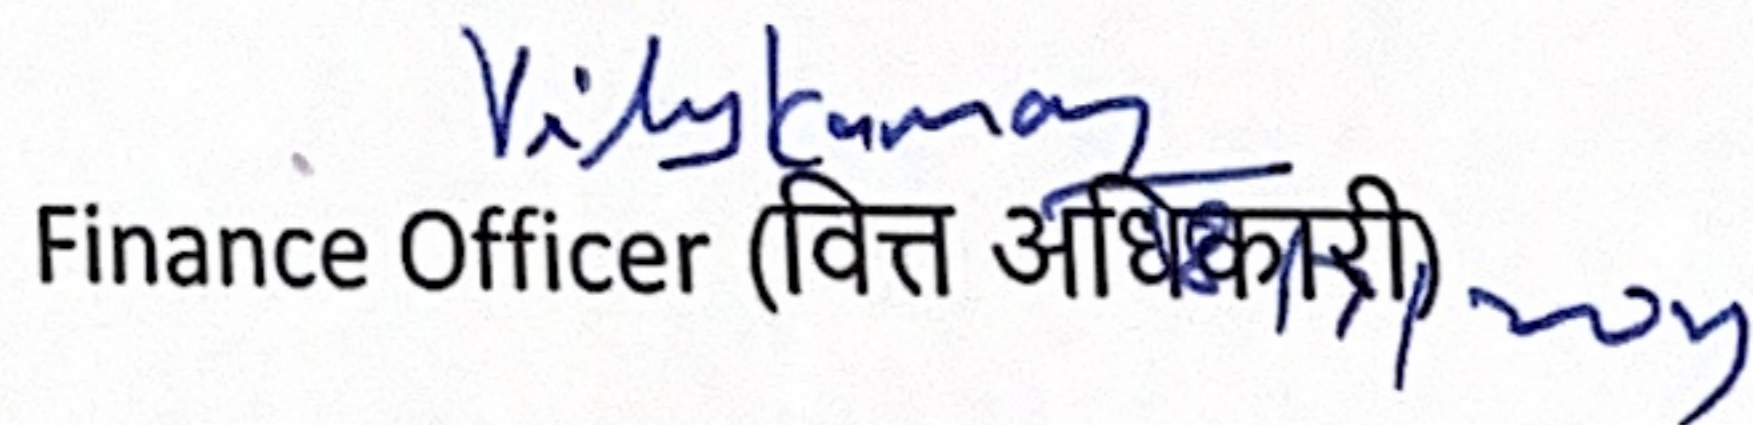 Vijay Kumar
Finance Officer (वित्त अधिकारी)